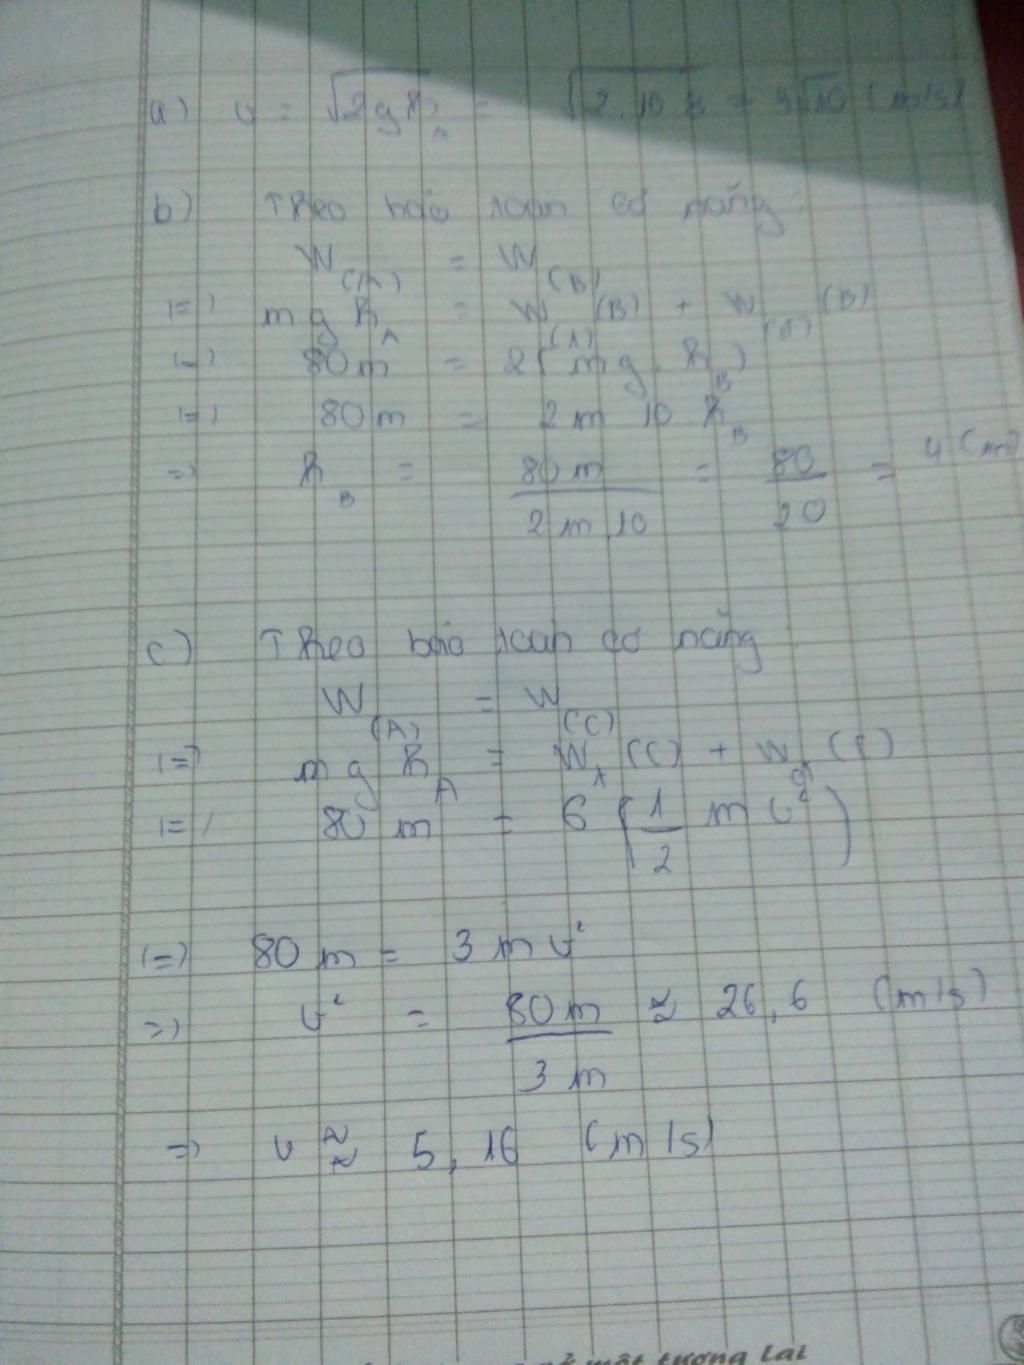 a) v = √2gh_A = √2.10.8 = 4√10 (m/s)
b) Theo bảo toàn cơ năng:
W(A) = W(B)
(=) mgh_A = W_(t)(B) + W_(đ)(B)
(=) 80m = 2(mg.h_B)
(=) 80m = 2m10h_B
=) h_B = 80m / 2m10 = 80 / 20 = 4 (m)
c) Theo bảo toàn cơ năng
W(A) = W(C)
(=) mgh_A = W_t(C) + W_đ(C)
(=) 80m = 6(1/2 mv²)
(=) 80m = 3mv²
=) v² = 80m / 3m ≈ 26,6 (m/s)
=) v ≈ 5,16 (m/s)
một tương lai